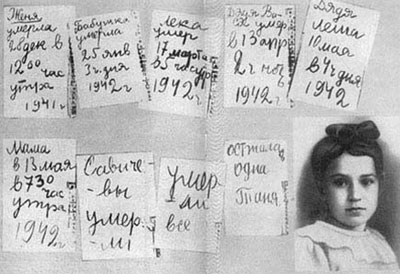 Женя
умерла
28 дек в
12 00 час
утра
1941 г
Бабушка
умерла
25 янв
3 ч. дня
1942 г
Лека
умер
17 марта
в 5 час утр
1942 г
Дядя Ва-
ся умер
в 13 апр
2 ч ноч
1942 г
Дядя
Леша
10 мая
в 4 ч дня
1942 г
Мама
в 13 мая
в 7 30
час
утра
1942 г
Савиче-
-вы
умер-
-ли
умер-
ли
все
осталас
одна
Таня